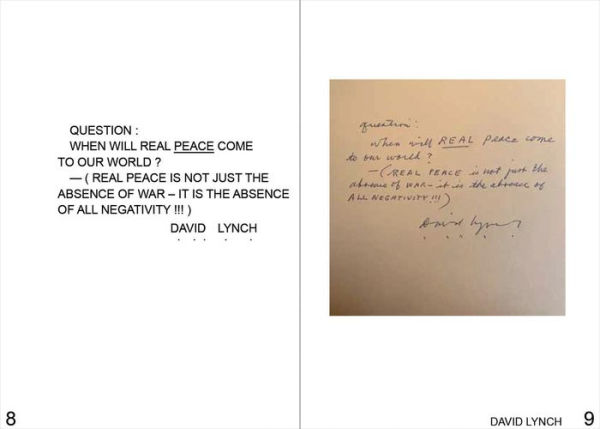 QUESTION :
WHEN WILL REAL PEACE COME
TO OUR WORLD ?
— ( REAL PEACE IS NOT JUST THE
ABSENCE OF WAR – IT IS THE ABSENCE
OF ALL NEGATIVITY !!! )
DAVID LYNCH
8
question :
When will REAL peace come
to our world ?
—(REAL PEACE is not just the
absence of WAR – it is the absence of
ALL NEGATIVITY !!!)
David Lynch
DAVID LYNCH 9